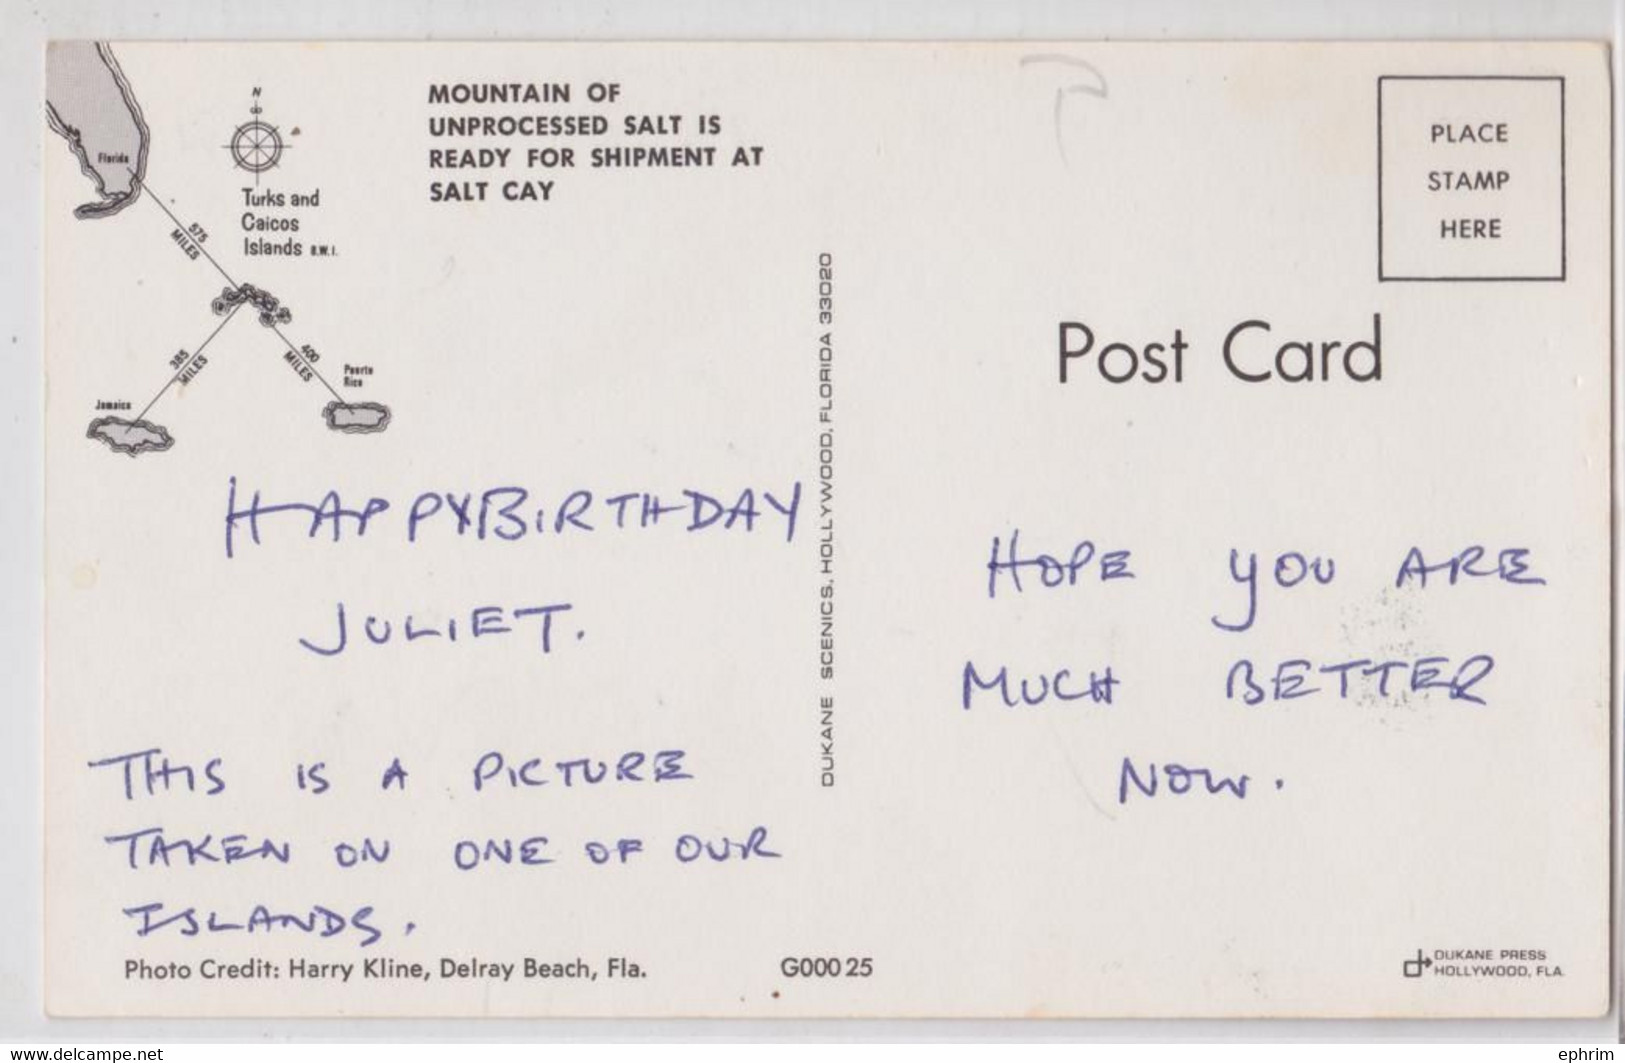 MOUNTAIN OF
UNPROCESSED SALT IS
READY FOR SHIPMENT AT
SALT CAY
N
Florida
Turks and
Caicos
Islands B.W.I.
575
MILES
385
MILES
400
MILES
Puerto
Rico
Jamaica
HAPPY BIRTHDAY
JULIET.
THIS IS A PICTURE
TAKEN ON ONE OF OUR
ISLANDS.
Photo Credit: Harry Kline, Delray Beach, Fla.
G00025
DUKANE SCENICS, HOLLYWOOD, FLORIDA 33020
PLACE
STAMP
HERE
Post Card
HOPE YOU ARE
MUCH BETTER
NOW.
DUKANE PRESS
HOLLYWOOD, FLA.
www.delcampe.net
ephrim